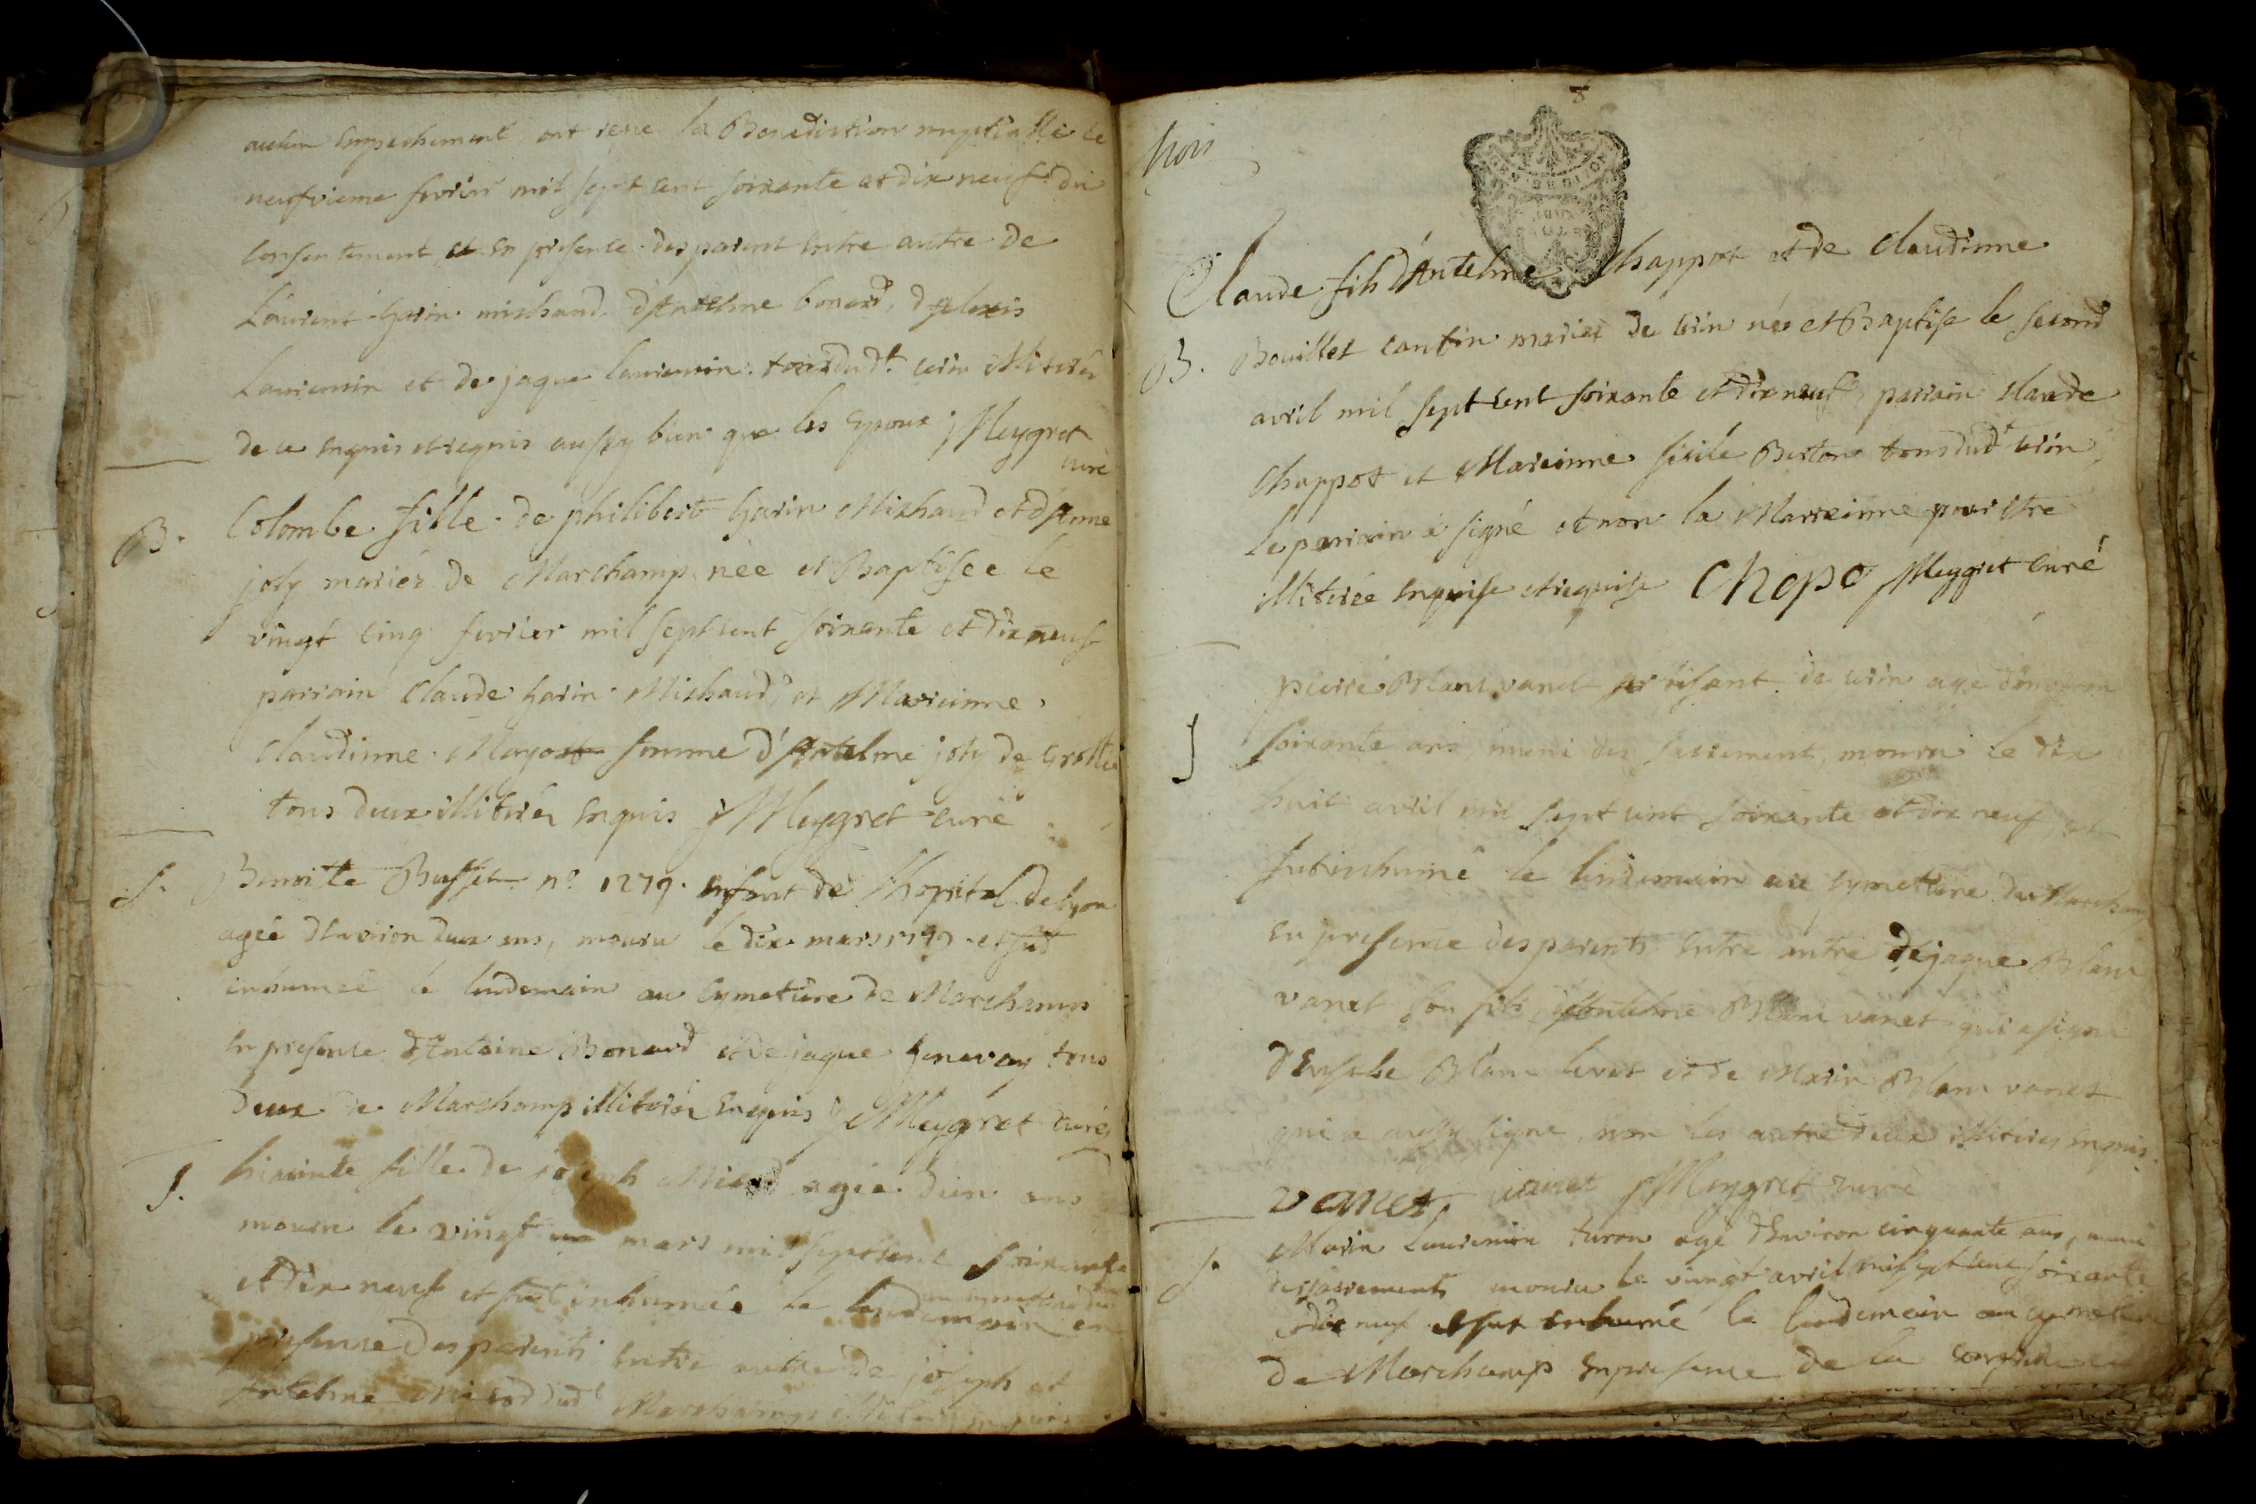 aucun empechement, ont reçu la Benediction nuptialle le
neufvieme fevrier mil sept cent soixante et dix neuf du
consentement et en presence des parent entre autre de
Laurent garin michaud d'Antelme bonard, d'alexis
Laurencin et de jaque laurencin tous dud.t cerin illiteres
de ce enquis et requis aussy bien que les epoux J Meygret
curé
B. Colombe fille de philibert garin Michaud et d'Anne
joly mariés de Marchamp née et Baptisée le
vingt cinq fevrier mil sept cent soixante et dix neuf
parrain Claude garin Michaud et Marreinne
Claudinne Mayost femme d'Antelme joly de
tous deux illiterés enquis J Meygret curé
S. Benoitte Busset n.o 1279. enfant de l'hopital de lyon
agée d'Environ deux ans, mouru le dix mars 1779 et fut
inhumée le lendemain au cymetiere de Marchamp
en presence d'Antoine Bonard et de jaque genevay tous
deux de Marchamp illiterés enquis J Meygret curé
S. hiacinte fille de joseph Micod agée d'un ans
mouru le vingt un mars mil sept cent soixante
et dix neuf et fut inhumée le lendemain en
presence des parents entre autre de joseph et
Antelme Micod dud.t Marchamp illiteres enquis
8
trois
Claude fils d'Antelme Chappot et de Claudinne
B. Bouillet cantin mariés de cerin né et Baptisé le second
avril mil sept cent soixante et dix neuf, parrain Claude
Chappot et Mareinne sisile Berton tous dud.t cerin,
le parrain a signé et non la Marreinne pour etre
illiterée enquise et requise Chopo J Meygret curé
pierre Blanc vanet de cerin agé d'environ
S soixante ans, muni des sacrement, mouru le dix
huit avril mil sept cent soixante et dix neuf, et
fut inhumé le lendemain au cymettiere de Marchamp
en presence des parents entre autre de jaque Blanc
vanet son fils, d'Antelme Blanc vanet qui a signé
d'Eusebe Blanc et de Marin Blanc vanet
qui a aussy signé, non les autre deux illiteres enquis.
vanet vanet J Meygret curé
S. Marin Laurencin turon agé d'Environ cinquante ans, muni
des sacrements mouru le vingt avril mil sept cent soixante
et dix neuf et fut inhumé le lendemain au cymetiere
de Marchamp en presence de la